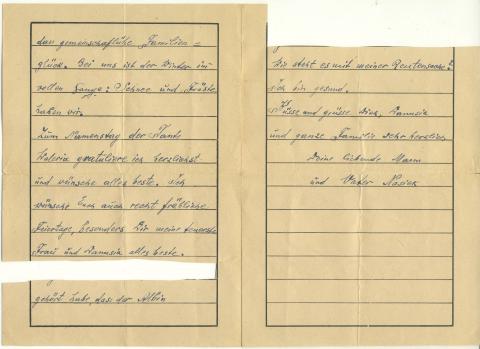 das gemeinschaftliche Familien=
glück. Bei uns ist der Winter im
vollen Gange: Schnee und Fröste
haben wir.
Zum Namenstag der Tante
Waleria gratuliere ich herzlichst
und wünsche alles beste. Ich
wünsche Euch auch recht fröhliche
Feiertage, besonders Dir meine teuerste
Frau und Danusia alles beste.
gehört habe, dass der Albin
Wie steht es mit meiner Rentensache?
Ich bin gesund.
Küsse und grüsse Dich, Danusia
und ganze Familie sehr herzlich
Deine liebende Mann
und Vater